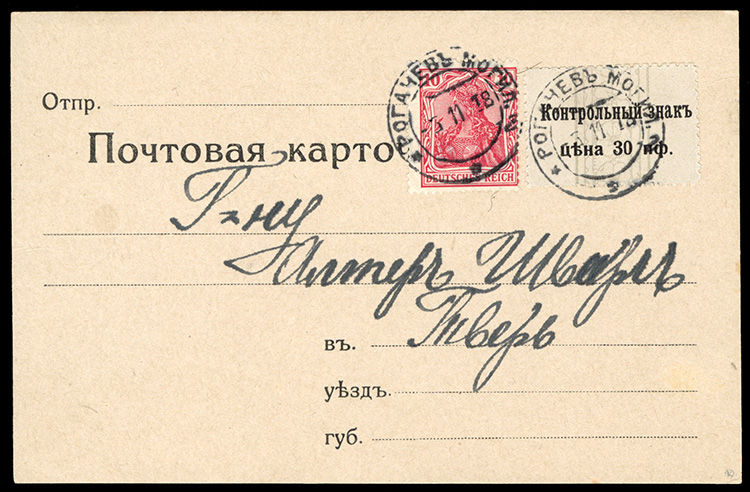 РОГАЧЕВЪ МОГИЛ.
3 11 18
10
DEUTSCHES REICH
РОГАЧЕВЪ МОГИЛ.
11 18
Контрольный знакъ
цѣна 30 пф.
Отпр.
Почтовая карто
Г-ну
Алтеръ Шварцъ
въ. Тверь
уѣздъ.
губ.